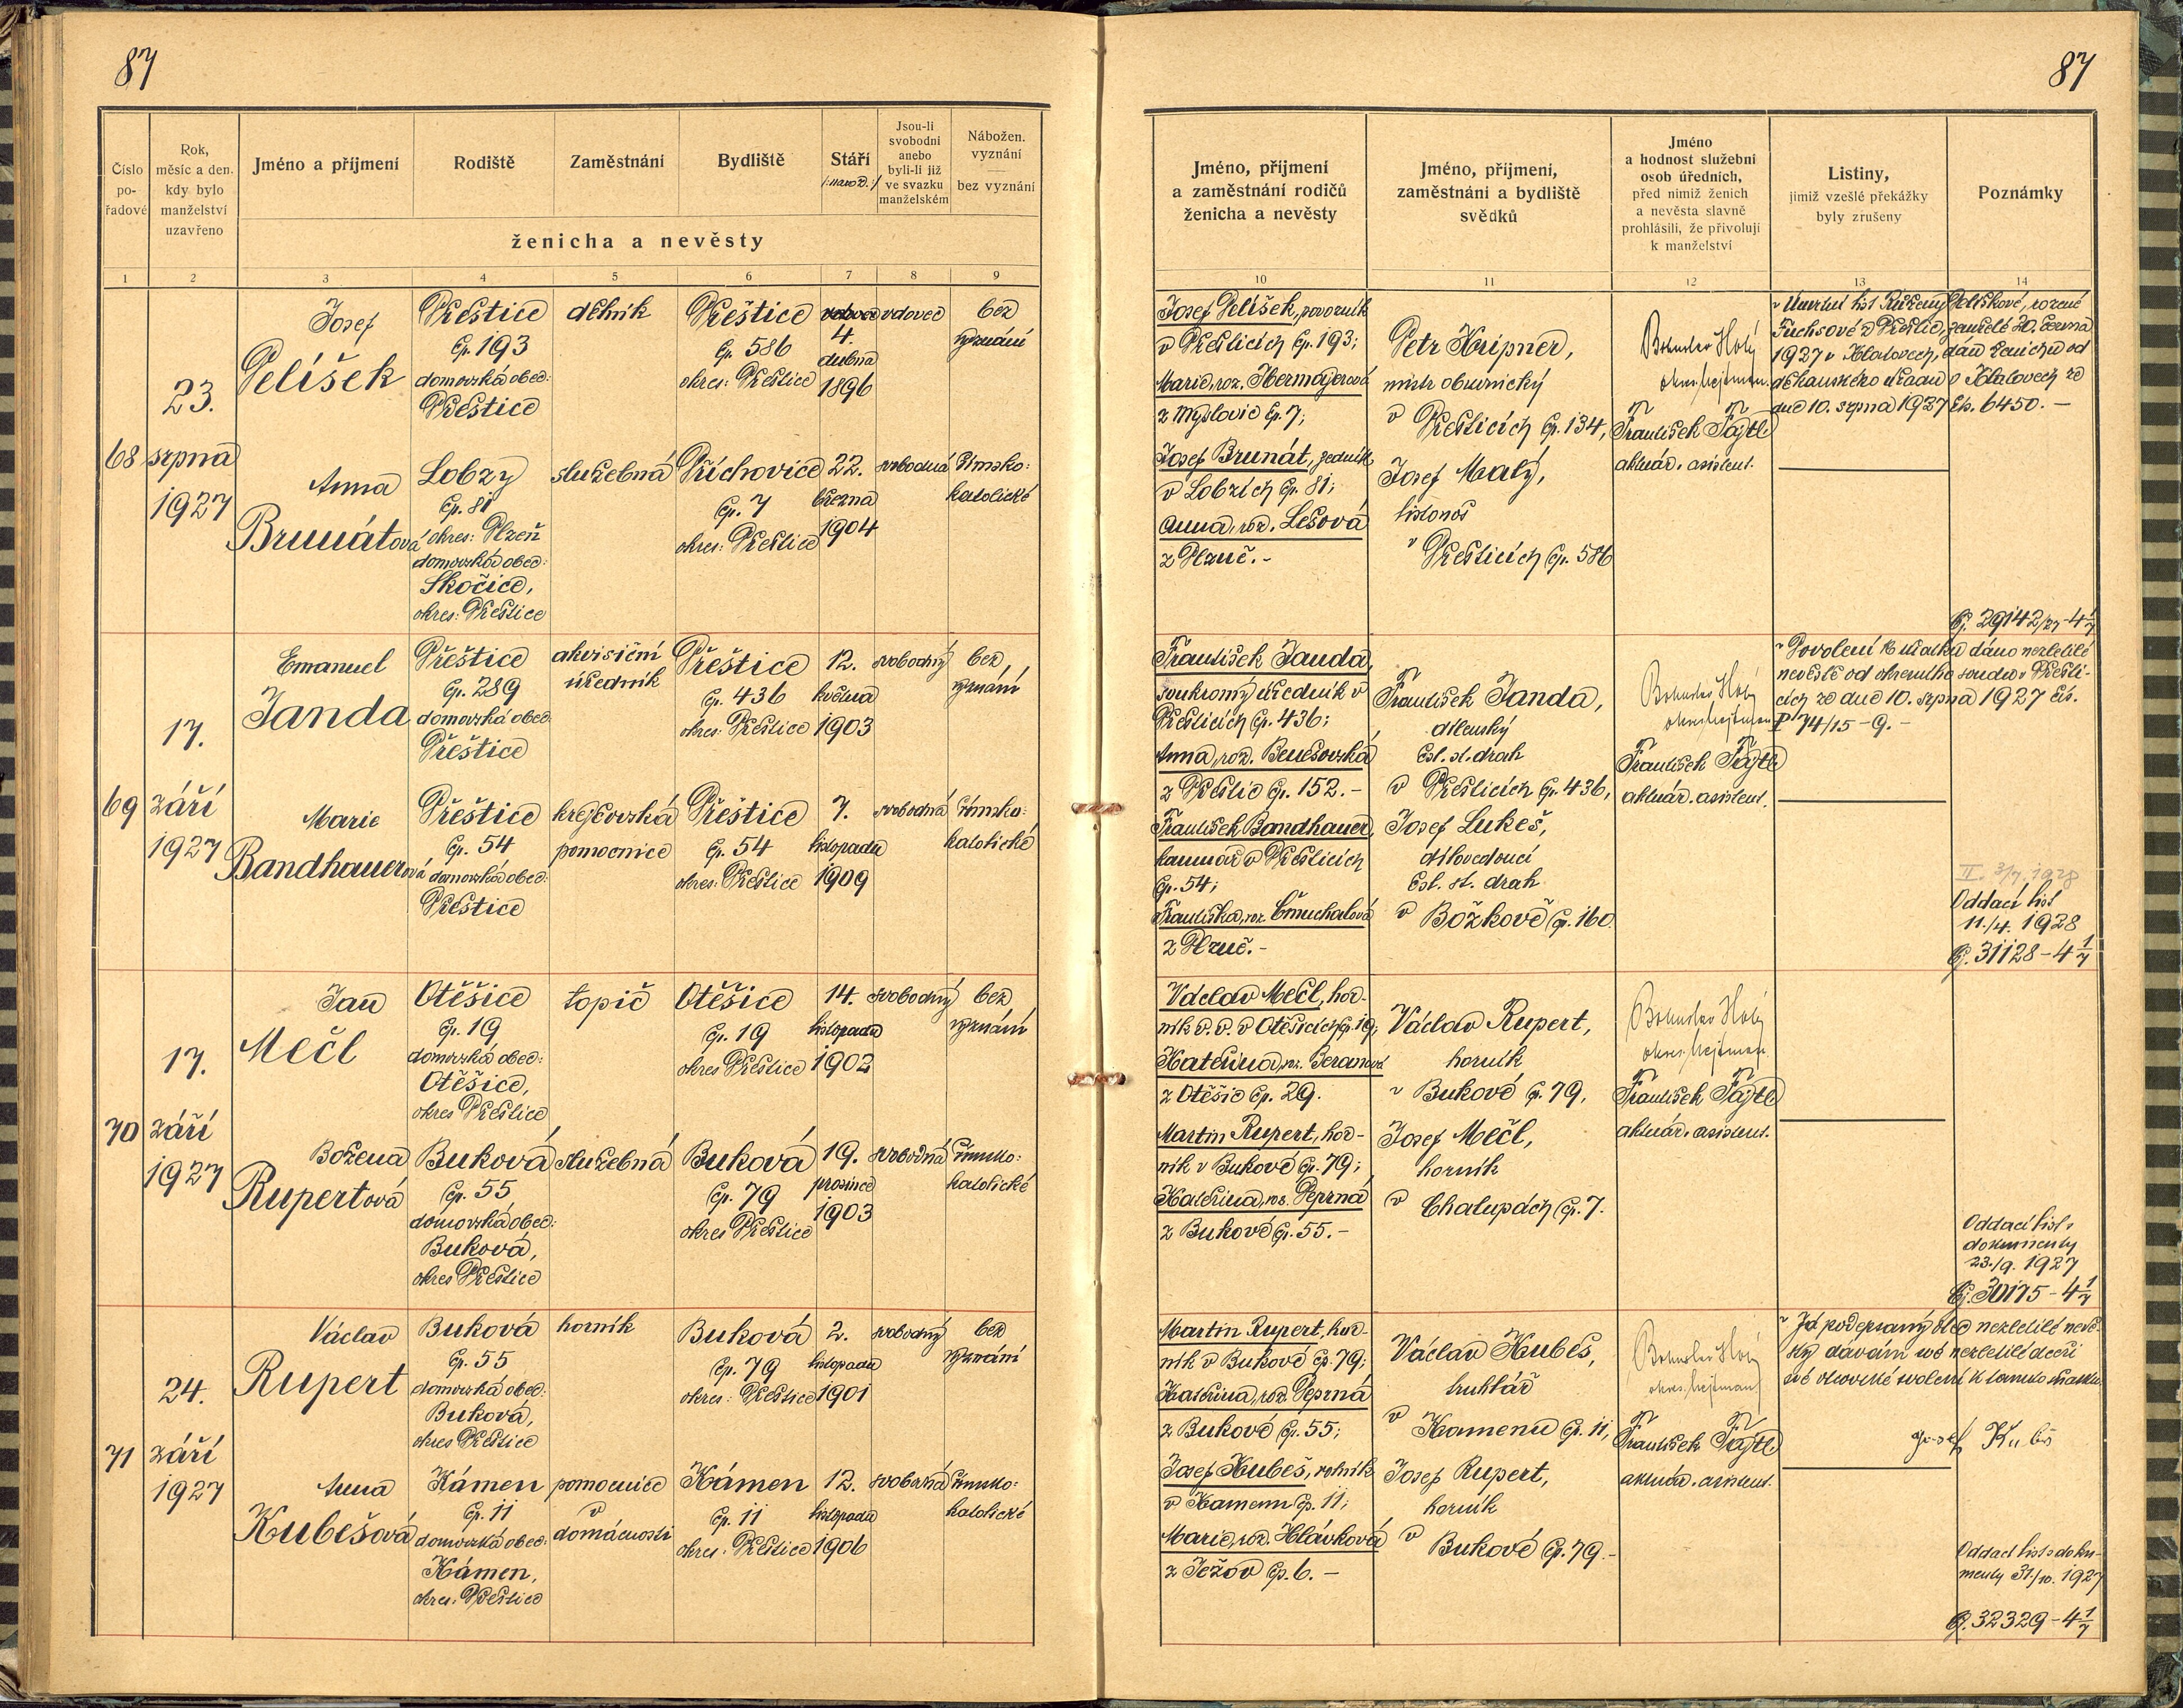 87
87
Číslo
po-
řadové
Rok,
měsíc a den,
kdy bylo
manželství
uzavřeno
Jméno a příjmení
Rodiště
Zaměstnání
Bydliště
Stáří
/:narod.:/
Jsou-li
svobodni
anebo
byli-li již
ve svazku
manželském
Nábožen.
vyznání
bez vyznání
ženicha a nevěsty
1 2 3 4 5 6 7 8 9
68
23.
srpna
1927
Josef
Pelíšek
Přeštice
čp. 193
domovská obec:
Přeštice
dělník
Přeštice
čp. 586
okres: Přeštice
4.
dubna
1896
vdovec
bez
vyznání
Anna
Brunátová
Lobzy
čp. 81
okres: Plzeň
domovská obec:
Skočice,
okres: Přeštice
služebná
Příchovice
čp. 7
okres: Přeštice
22.
března
1904
svobodná
římsko-
katolické
69
17.
září
1927
Emanuel
Janda
Přeštice
čp. 289
domovská obec
Přeštice
akvisiční
úředník
Přeštice
čp. 436
okres: Přeštice
12.
května
1903
svobodný
bez
vyznání
Marie
Bandhauerová
Přeštice
čp. 54
domovská obec:
Přeštice
krejčovská
pomocnice
Přeštice
čp. 54
okres: Přeštice
7.
listopadu
1909
svobodná
římsko-
katolické
70
17.
září
1927
Jan
Mečl
Otěšice
čp. 19
domovská obec:
Otěšice,
okres Přeštice
topič
Otěšice
čp. 19
okres Přeštice
14.
listopadu
1902
svobodný
bez
vyznání
Božena
Rupertová
Buková
čp. 55
domovská obec:
Buková,
okres Přeštice
služebná
Buková
čp. 79
okres Přeštice
19.
prosince
1903
svobodná
římsko-
katolické
71
24.
září
1927
Václav
Rupert
Buková
čp. 55
domovská obec:
Buková,
okres Přeštice
horník
Buková
čp. 79
okres: Přeštice
2.
listopadu
1901
svobodný
bez
vyznání
Anna
Kubešová
Kámen
čp. 11
domovská obec:
Kámen,
okres: Přeštice
pomocnice
v
domácnosti
Kámen
čp. 11
okres: Přeštice
12.
listopadu
1906
svobodná
římsko-
katolické
Jméno, příjmení
a zaměstnání rodičů
ženicha a nevěsty
Jméno, příjmení,
zaměstnání a bydliště
svědků
Jméno
a hodnost služební
osob úředních,
před nimiž ženich
a nevěsta slavně
prohlásili, že přivolují
k manželství
Listiny,
jimiž vzešlé překážky
byly zrušeny
Poznámky
10 11 12 13 14
Josef Pelíšek, povozník
v Přešticích čp. 193;
Marie, roz. Obermajerová
z Myslovic čp. 7;
Josef Brunát, zedník
v Lobzích čp. 81;
Anna, roz. Lešová
z Plzně.-
Petr Kripner,
mistr obuvnický
v Přešticích čp. 134,
Josef Malý,
listonoš
v Přešticích čp. 586
Bohuslav Holý
okres. hejtman.
František Fajtl
aktuár. asistent.
Úmrtní list Růženy Pelíškové, rozené
Fuchsové z Přeštic, zemřelé 20. června
1927 v Klatovech, dán ženichu od
děkanského úřadu v Klatovech ze
dne 10. srpna 1927 čís. 6450.-
čj. 29142/27-4 1/7
František Janda,
soukromý úředník v
Přešticích čp. 436;
Anna, roz. Benešovská
z Přeštic čp. 152.-
František Bandhauer,
v Přešticích
čp. 54;
Františka, roz. Čmuchalová
z Plzně.-
František Janda,
dílenský
čsl. st. drah
v Přešticích čp. 436,
Josef Lukeš,
dílovedoucí
čsl. st. drah
v Božkově čp. 160.
Bohuslav Holý
okres. hejtman
František Fajtl
aktuár. asistent.
Povolení k sňatku dáno nezletilé
nevěstě od okresního soudu v Přešti-
cích ze dne 10. srpna 1927 čís.
P 74/15-9.-
II. 3/7. 1928
Oddací list
11./4. 1928
čj. 31128-4 1/7
Václav Mečl, hor-
ník v. v. v Otěšicích čp. 19;
Kateřina, roz. Beranová
z Otěšic čp. 29.
Martin Rupert, hor-
ník v Bukové čp. 79;
Kateřina, roz. Peprná
z Bukové čp. 55.-
Václav Rupert,
horník
v Bukové čp. 79,
Josef Mečl,
horník
v Chalupách čp. 7.
Bohuslav Holý
okres. hejtman
František Fajtl
aktuár. asistent.
Oddací list s
dokumenty
23./9. 1927
čj. 30175-4 1/7
Martin Rupert, hor-
ník v Bukové čp. 79;
Kateřina, roz. Peprná
z Bukové čp. 55;
Josef Kubeš, rolník
v Kamenu čp. 11;
Marie, roz. Hlávková
z Ježov čp. 6.-
Václav Kubeš,
truhlář
v Kamenu čp. 11,
Josef Rupert,
horník
v Bukové čp. 79.-
Bohuslav Holý
okres. hejtman
František Fajtl
aktuár. asistent.
Já podepsaný otec nezletilé nevě-
sty dávám své nezletilé dceři
své otcovské svolení k tomuto sňatku.
Josef Kubeš
Oddací list s doku-
menty 31./10. 1927
čj. 32329-4 1/7